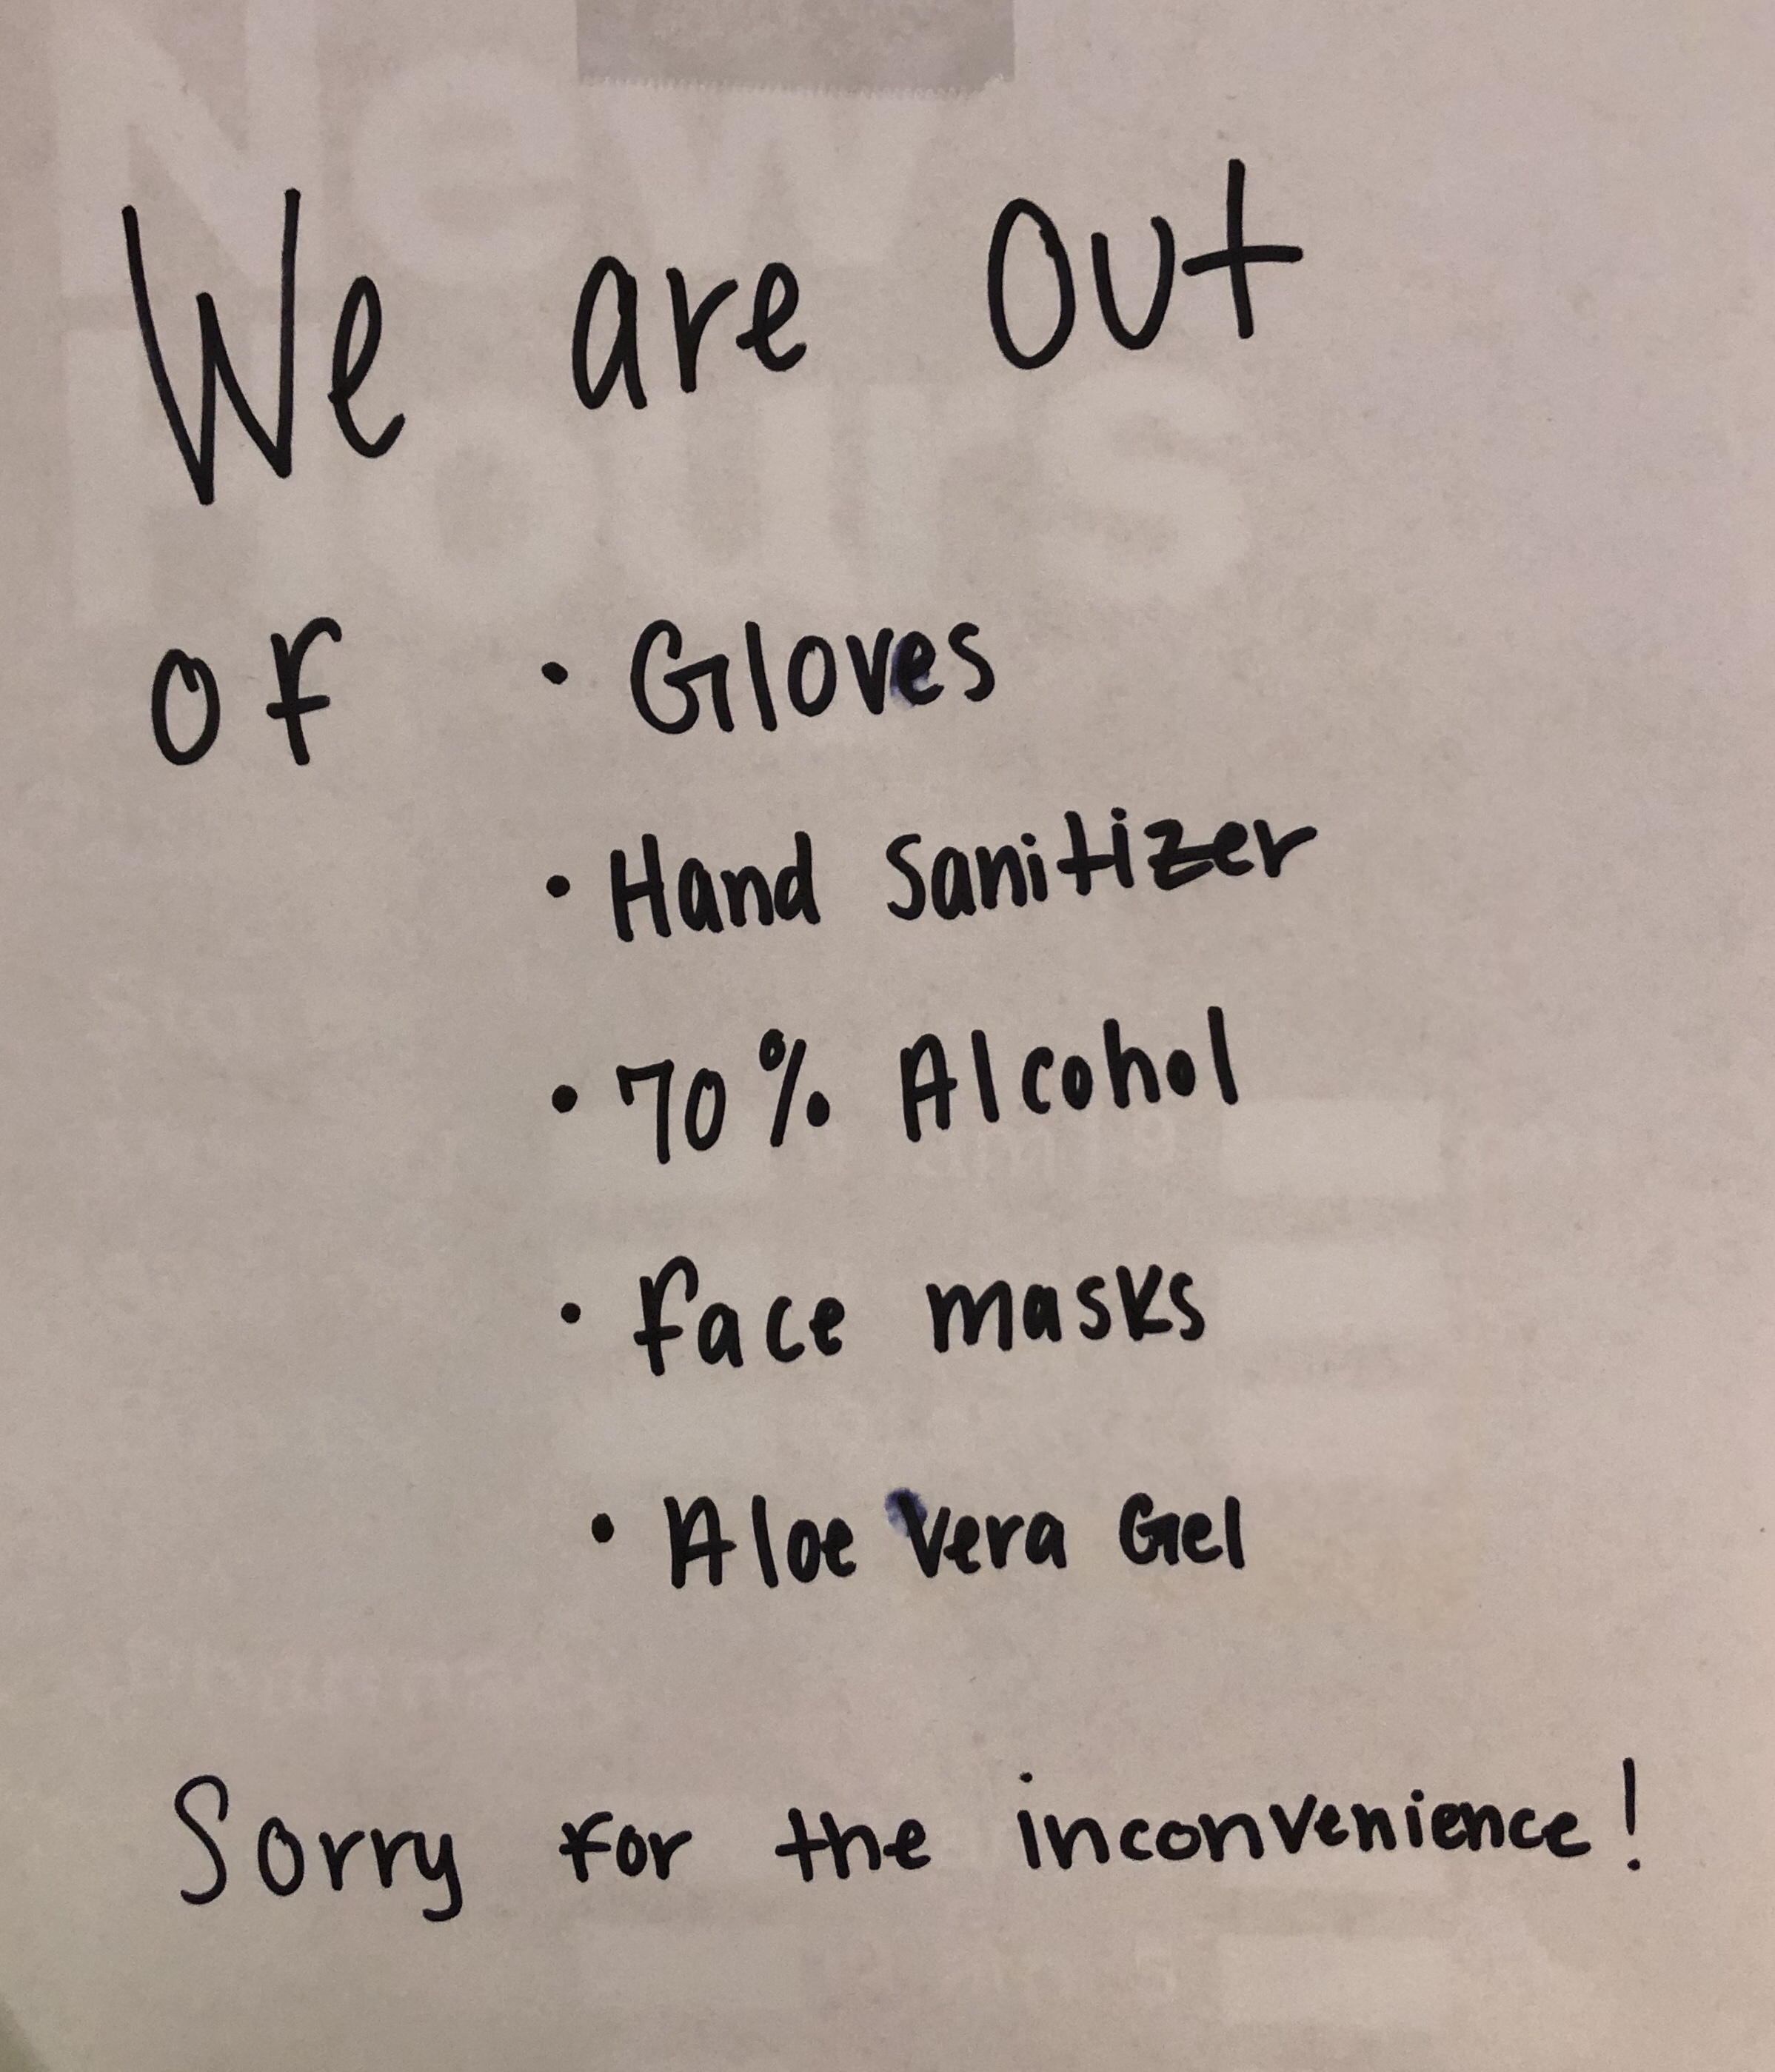 New
Hours
We are Out
of • Gloves
• Hand Sanitizer
• 70% Alcohol
• face masks
• Aloe Vera Gel
Sorry for the inconvenience!